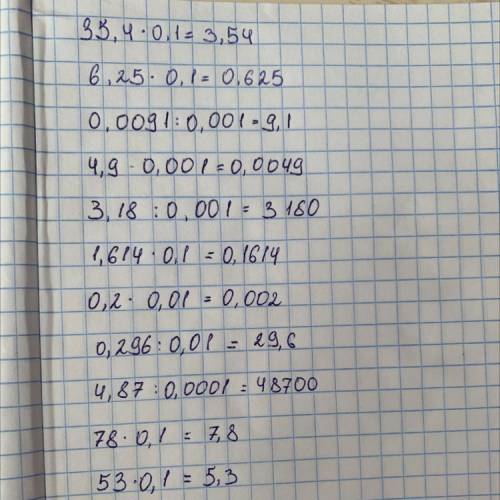 35,4 · 0,1 = 3,54
6,25 · 0,1 = 0.625
0,0091 : 0,001 = 9,1
4,9 · 0,001 = 0,0049
3,18 : 0,001 = 3180
1,614 · 0,1 = 0,1614
0,2 · 0,01 = 0,002
0,296 : 0,01 = 29,6
4,87 : 0,0001 = 48700
78 · 0,1 = 7,8
53 · 0,1 = 5,3